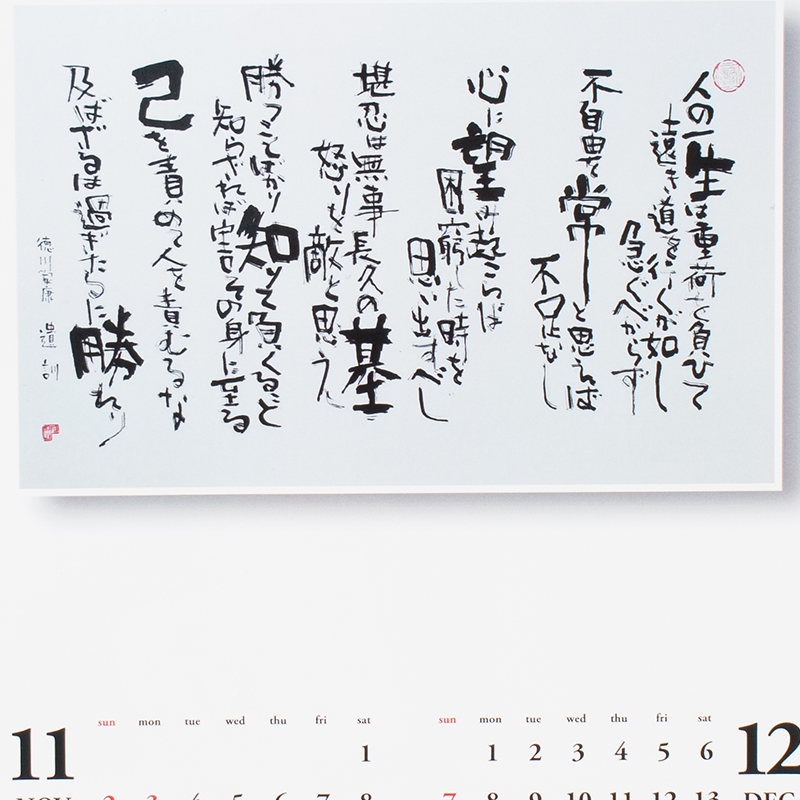 人の一生は重荷を負ひて
遠き道を行くが如し
急ぐべからず
不自由を常と思へば
不足なし
心に望み起こらば
困窮した時を
思い出すべし
堪忍は無事長久の基
怒りを敵と思え
勝つことばかり知りて負くること
知らざれば害その身に至る
己を責めて人を責むるな
及ばざるは過ぎたるに勝れり
徳川家康 遺訓
11
sun mon tue wed thu fri sat
1
NOV 2 3 4 5 6 7 8
12
sun mon tue wed thu fri sat
1 2 3 4 5 6
7 8 9 10 11 12 13 DEC